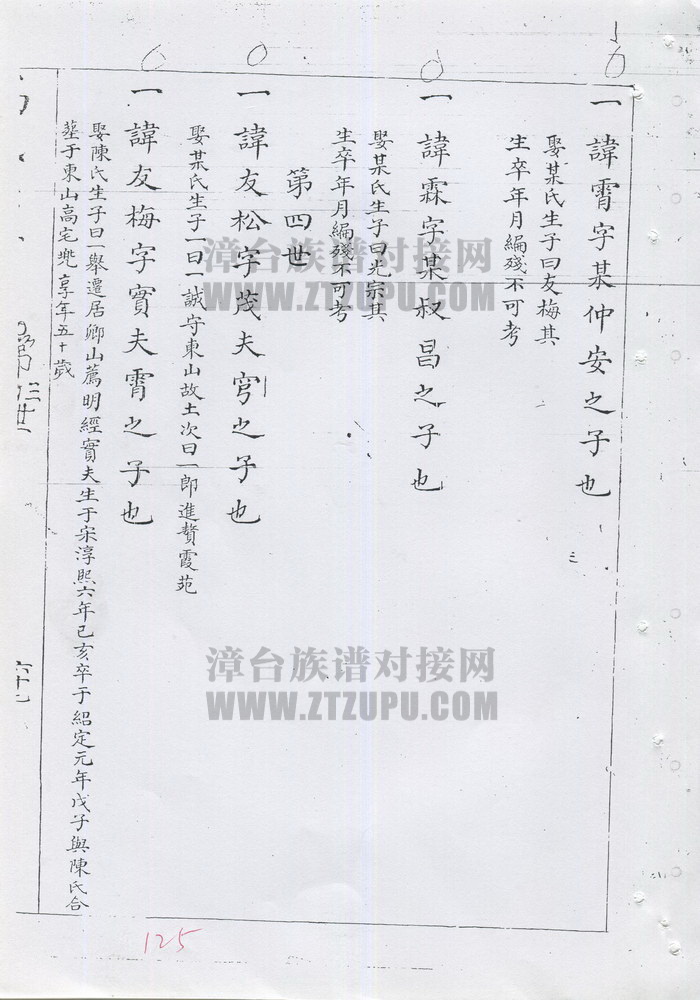 一諱霄字某仲安之子也
娶某氏生子曰友梅其
生卒年月編殘不可考
一諱霖字某叔昌之子也
娶某氏生子曰光宗其
生卒年月編殘不可考
第四世
一諱友松字茂夫穹之子也
娶某氏生子一曰一誠守東山故土次曰一郎進贅霞苑
一諱友梅字實夫霄之子也
娶陳氏生子曰一舉遷居卿山薦明經實夫生于宋淳熙六年己亥卒于紹定元年戊子與陳氏合
塟于東山高宅兠享年五十歲
第三世
六十七
125
漳台族谱对接网
WWW.ZTZUPU.COM
漳台族谱对接网
WWW.ZTZUPU.COM